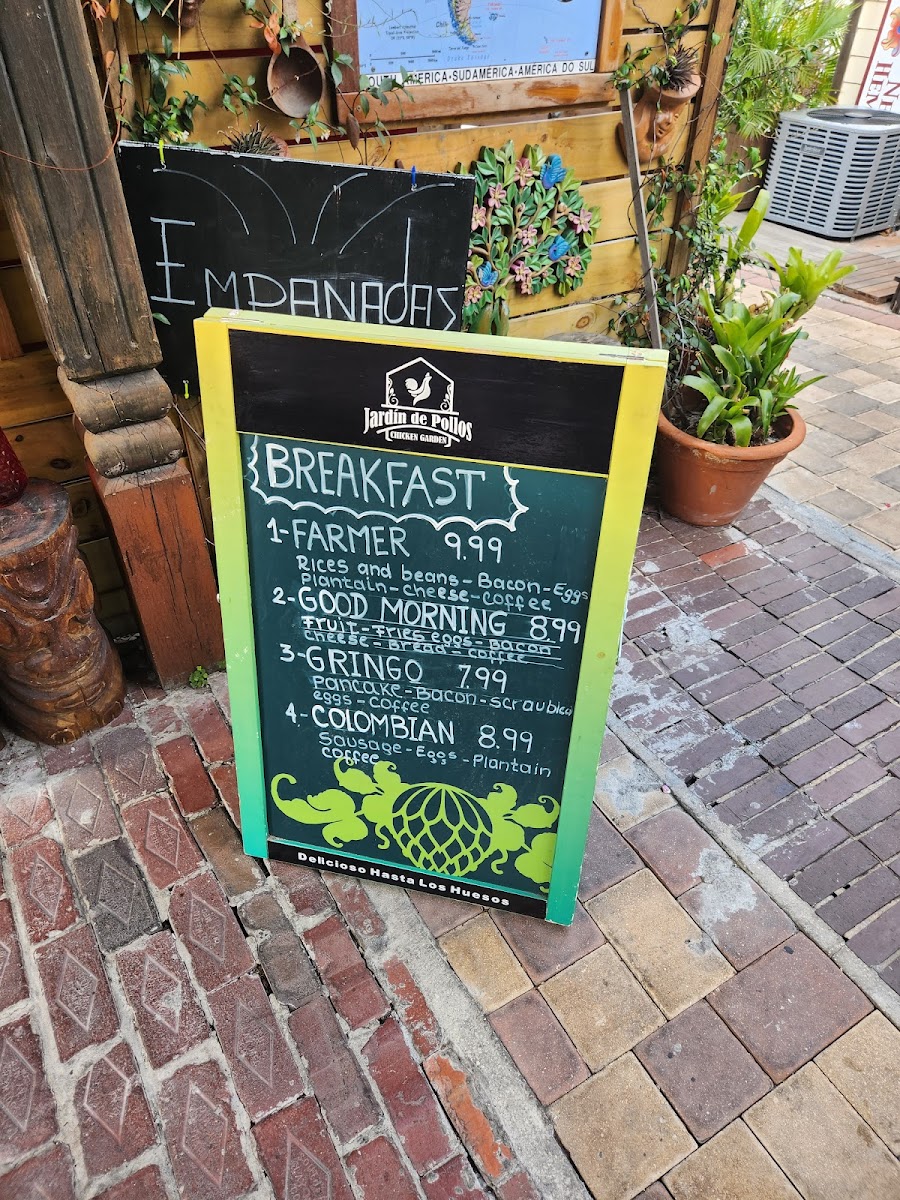 Chile
SOUTH AMERICA-SUDAMERICA-AMÉRICA DO SUL
IMPANADAS
Jardín de Pollos
CHICKEN GARDEN
BREAKFAST
1-FARMER 9.99
Rices and beans-Bacon-Eggs
Plantain-cheese-coffee
2-GOOD MORNING 8.99
fruit-fries eggs-bacon
cheese-Bread-coffee
3-GRINGO 7.99
Pancake-Bacon-scraublea
eggs-coffee
4-COLOMBIAN 8.99
Sausage-Eggs-Plantain
coffee
Delicioso Hasta Los Huesos